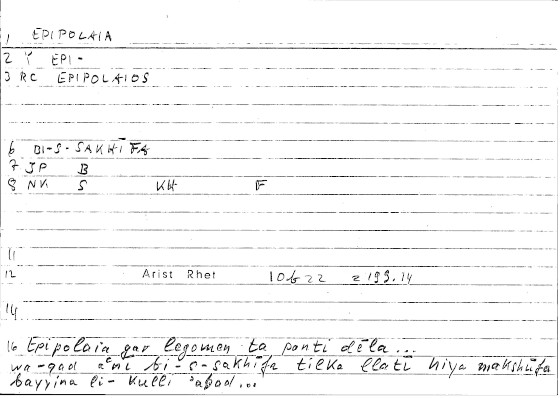 1 EPIPOLAIA
2 Y EPI-
3 RC EPIPOLAIOS
6 BI-S-SAKHĪFA
7 JP B
8 NK S KH F
11
12 Arist Rhet 10b22 = 199.14
14
16 Epipolaia gar legomen ta panti dēla...
wa-qad aʿnī bi-s-sakhīfa tilka llatī hiya makshūfa
bayyina li-kulli aḥad...